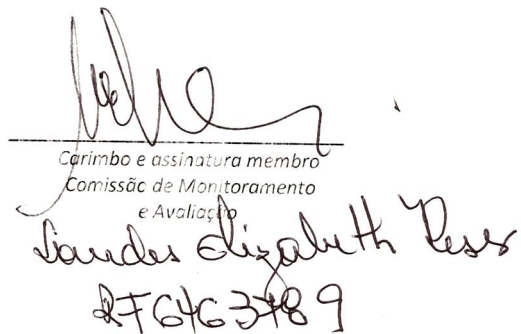 Carimbo e assinatura membro
Comissão de Monitoramento
e Avaliação
Elizabeth
RF6463789